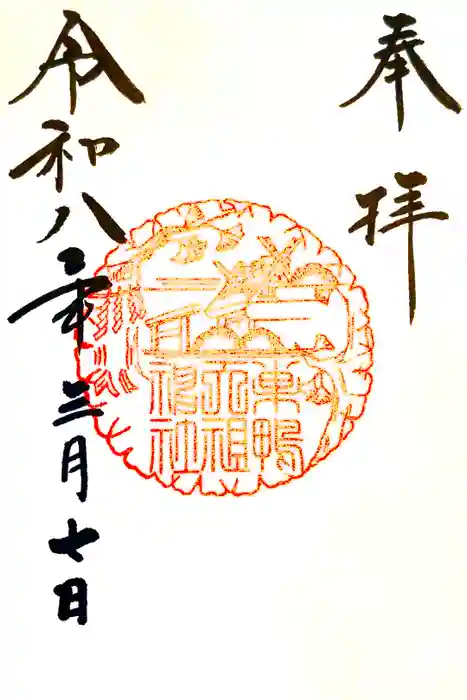 奉拝
巣鴨
天祖
神社
令和八年三月七日